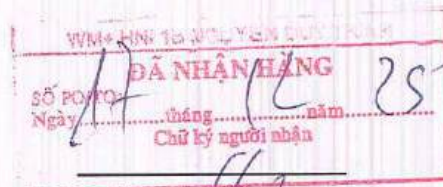 WM+ HNI 16 NGUYEN
ĐÃ NHẬN HÀNG
SỐ PO/TO:
Ngày 17 tháng 12 năm 25
Chữ ký người nhận